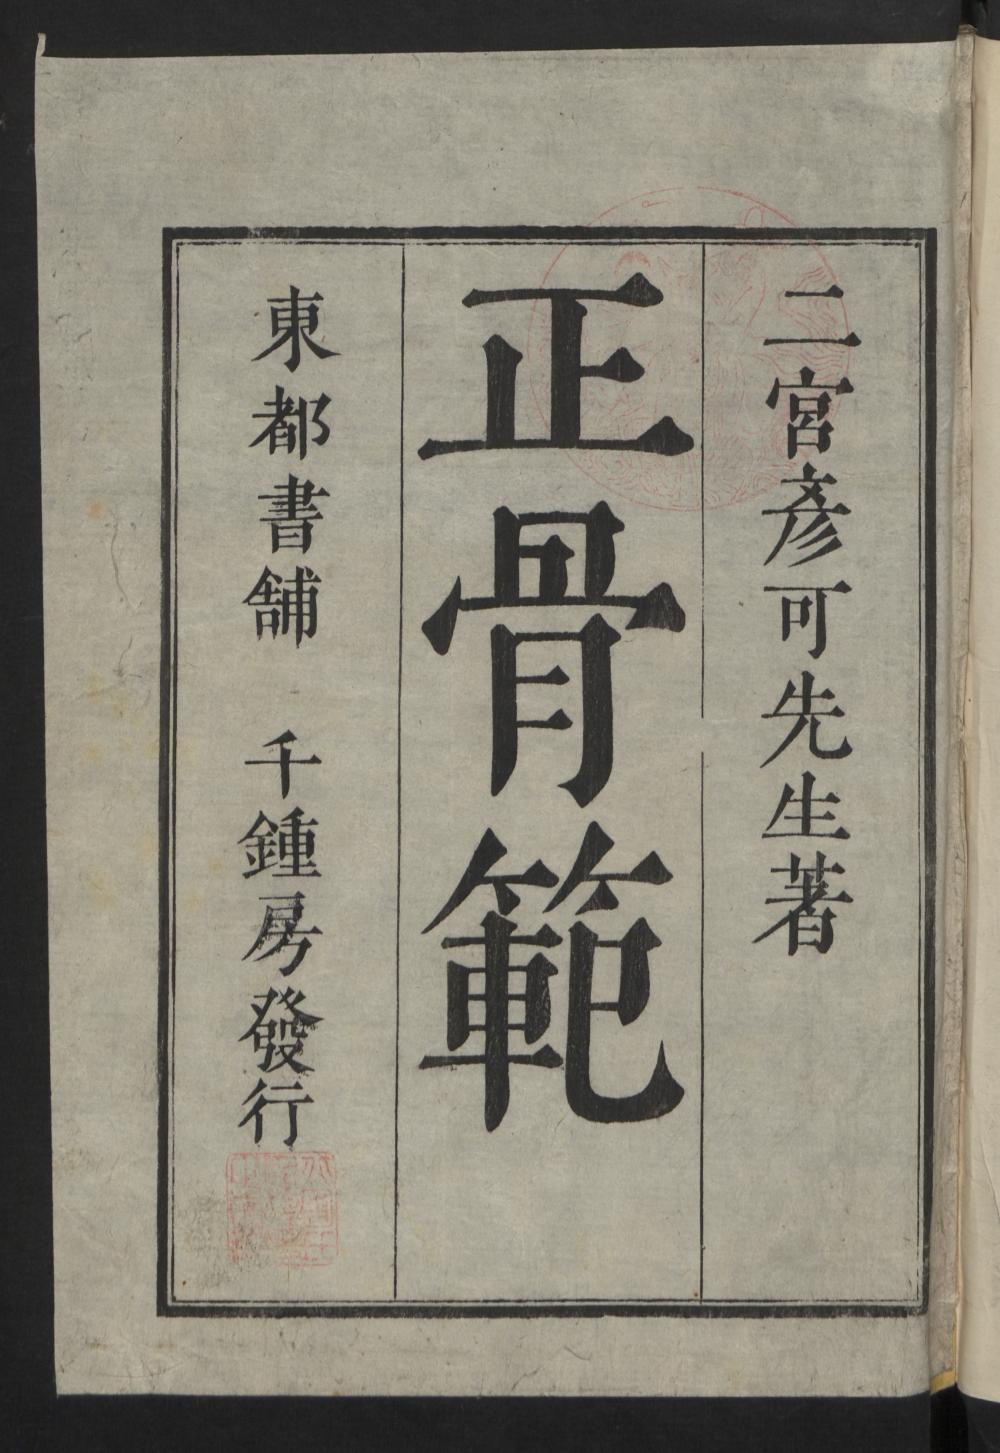 二宮彥可先生著
正骨範
東都書舖 千鍾房發行